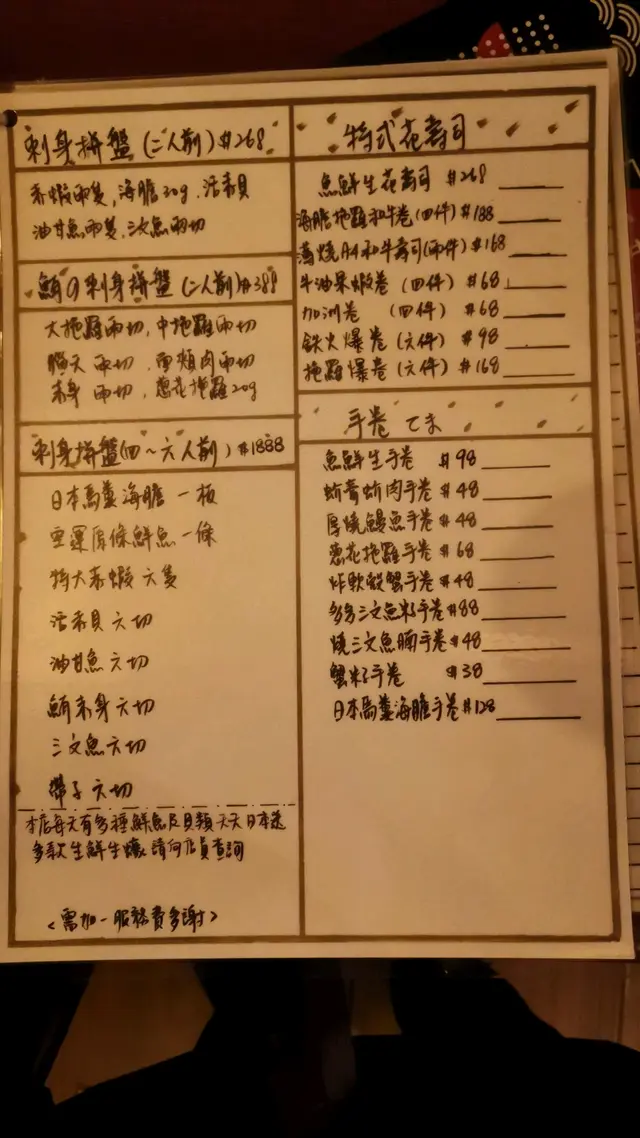 刺身拼盤(二人前)$268
赤蝦兩隻,海膽20g,活赤貝
油甘魚兩隻,三文魚兩切
鮪の刺身拼盤(二人前)$388
大拖羅兩切,中拖羅兩切
腦天兩切,面頰肉兩切
赤身兩切,蔥花拖羅20g
刺身拼盤(四~六人前)$1888
日本馬糞海膽一板
空運原條鮮魚一條
特大赤蝦六隻
活赤貝六切
油甘魚六切
鮪赤身六切
三文魚六切
帶子六切
本店每天有多種鮮魚及貝類天天日本送
多款生鮮生蠔請向店員查詢
<需加一服務費多謝>
特式花壽司
魚鮮生花壽司 $268
海膽拖羅和牛卷(四件)$188
燒A4和牛壽司(兩件)$168
牛油果蝦卷(四件)$68
加洲卷(四件)$68
鉄火爆卷(六件)$98
拖羅爆卷(六件)$168
手卷 てま
魚鮮生手卷 $98
蚧膏蚧肉手卷 $48
厚燒鰻魚手卷 $48
蔥花拖羅手卷 $68
炸軟殼蟹手卷 $48
多多三文魚籽手卷 $88
燒三文魚腩手卷 $48
蟹籽手卷 $38
日本馬糞海膽手卷 $128